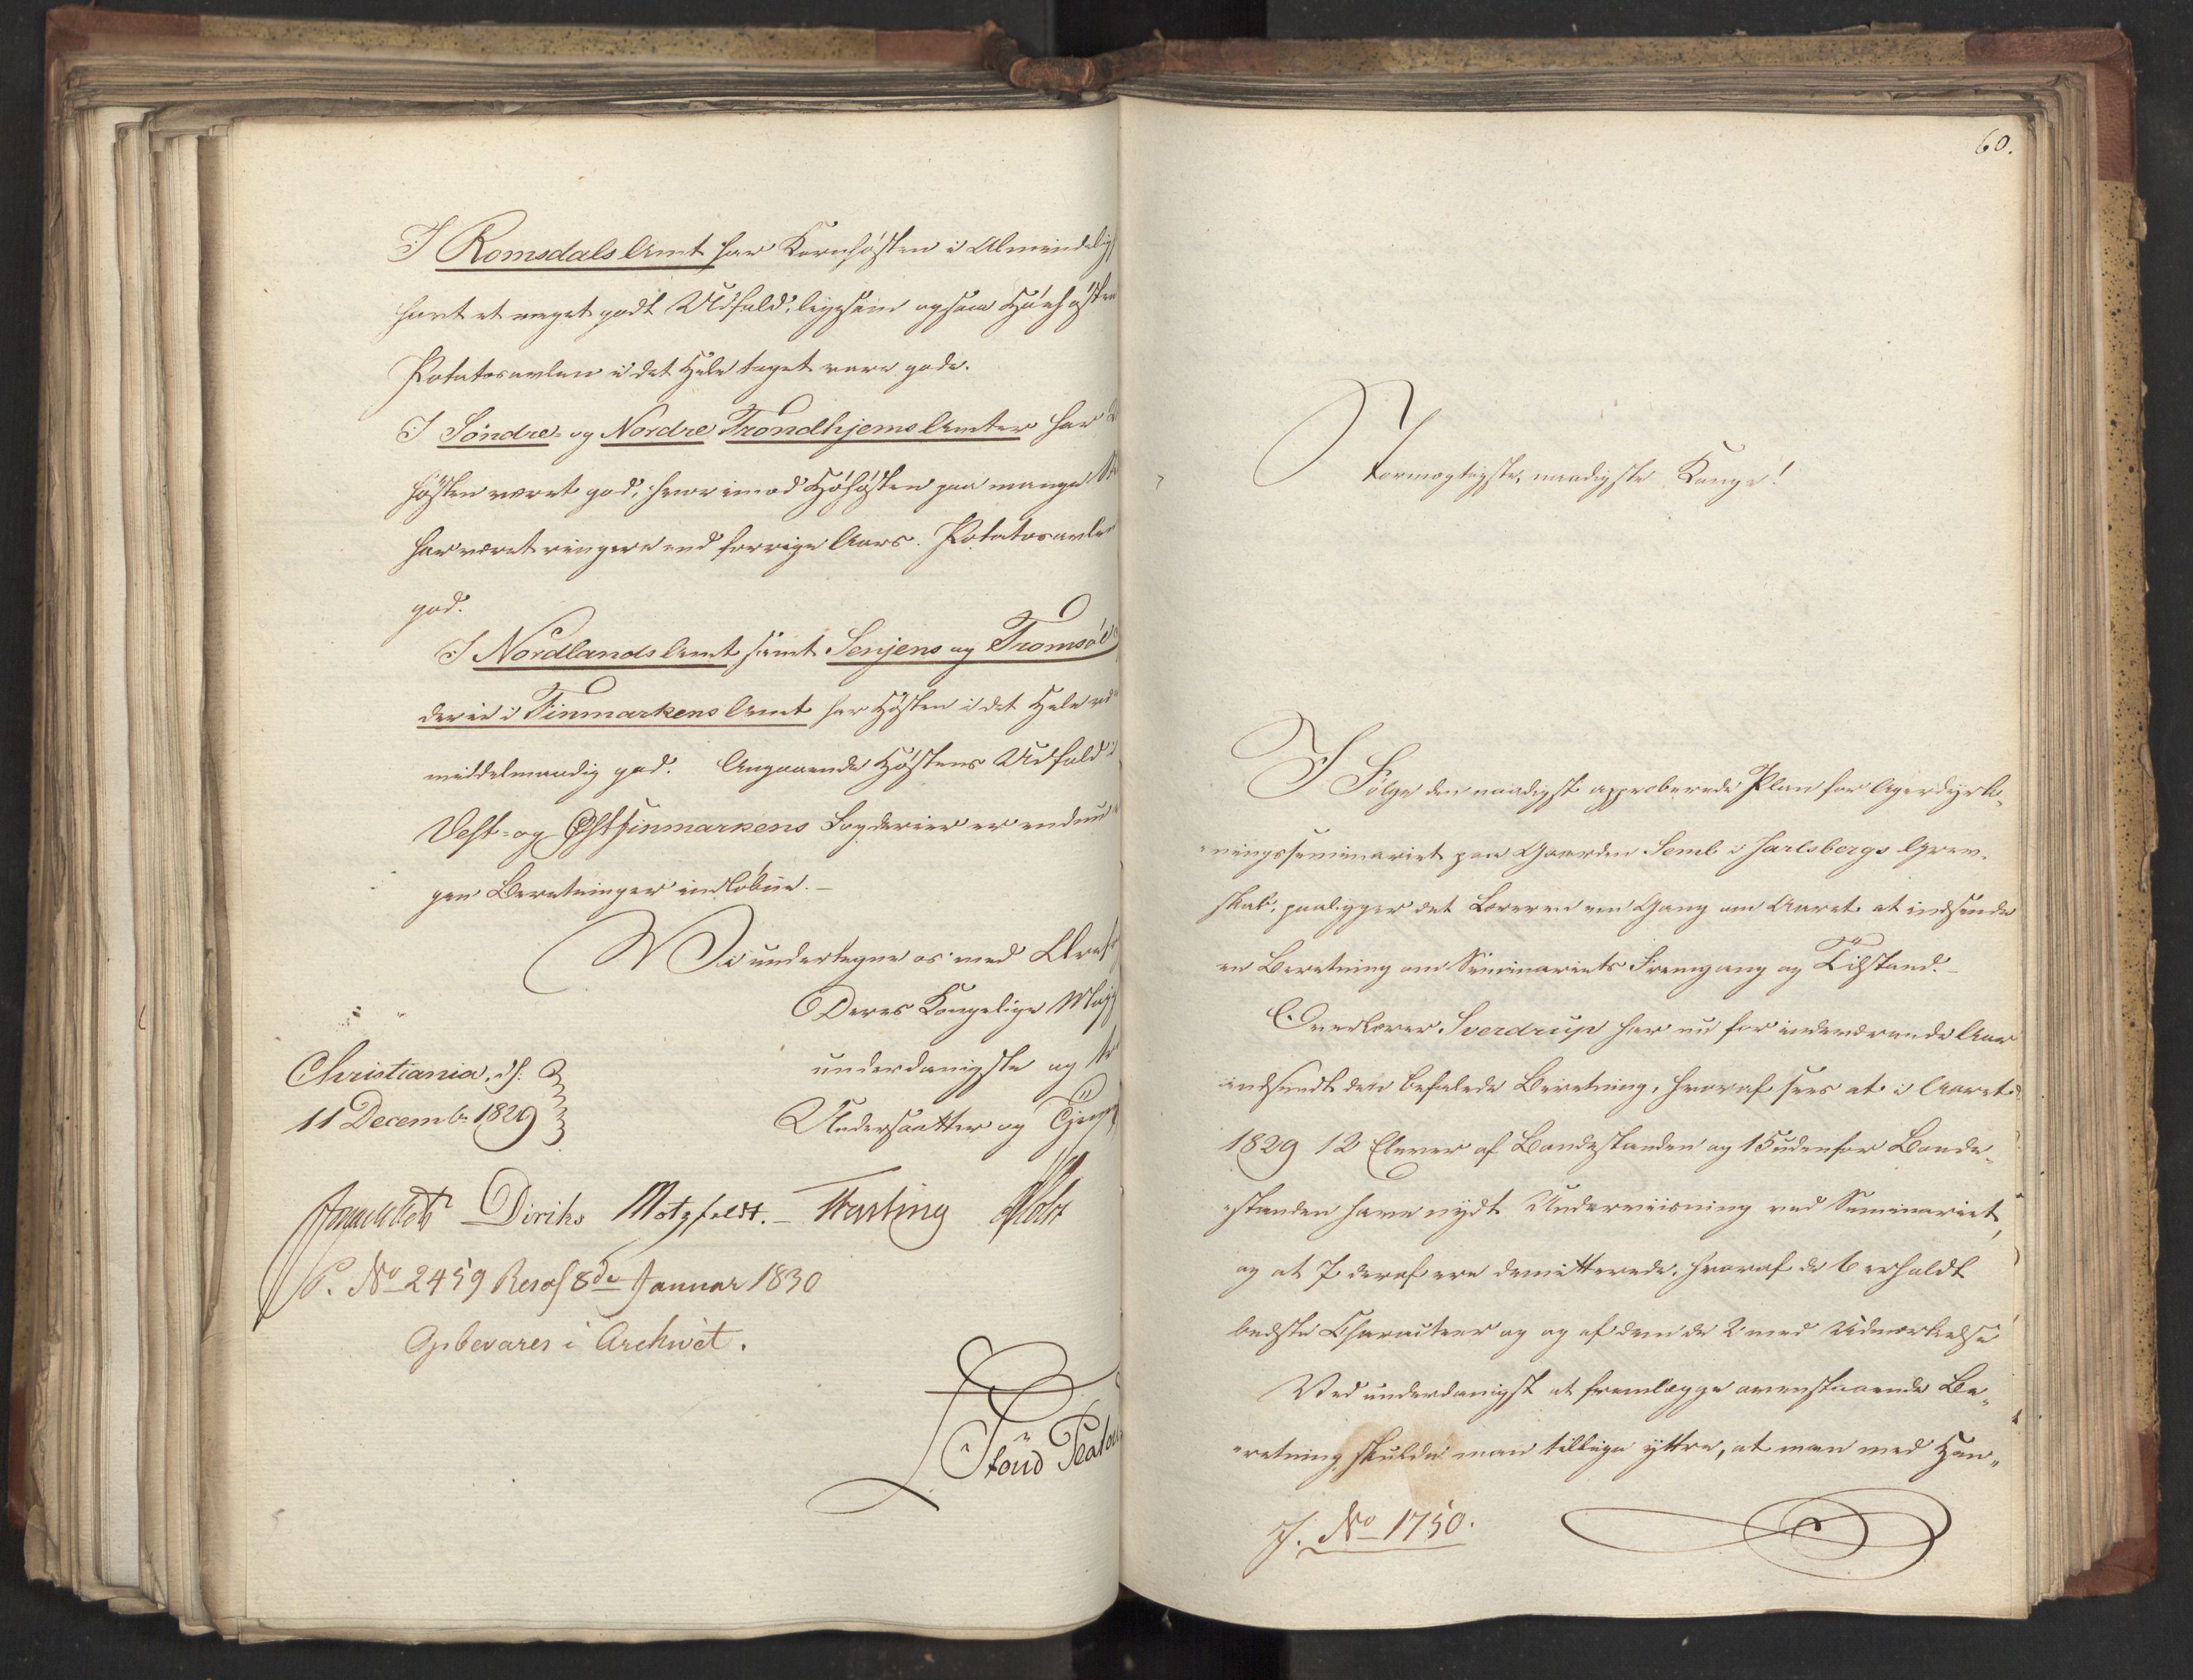 I Romsdals Amt har Kornhösten i Almindelig
havt et meget godt Udfald, ligesom ogsaa Höehösten
Potatosavlen i det Hele taget vare gode.
I Söndre- og Nordre Trondhjems Amter har
hösten været god, hvorimod Höhösten paa mange
har været ringere end forrige Aars. Potatosavlen
god.
I Nordlands Amt samt Senjens og Tromsö
derie i Finmarkens Amt har Hösten i det Hele
middelmaadig god. Angaaende Höstens Udfald i
Vest- og Östfinmarkens Fogderier er endnu
gen Beretninger indløbne.-
Vi undertegne os med
Deres Kongelige Maj
underdanigste og
Undersaatter og
Christiania, d:
11 Decemb: 1829
Diriks Motzfeldt.- Fasting
P. No 2459 Resol 8de Januar 1830
Opbevares i Archivet.
60.
Stormægtigste, naadigste Konge!
I Følge den naadigst approberede Plan for Agerdyrk-
ningsseminariet paa Gaarden Semb i Jarlsbergs Grev-
skab, paaligger det Læreren een Gang om Aaret at indsende
en Beretning om Seminariets Fremgang og Tilstand.-
Overlærer Sverdrup har nu for indeværende Aar
indsendt den befalede Beretning, hvoraf sees at i Aaret
1829 12 Elever af Bondestanden og 15 udenfor Bonde-
standen have nydt Underviisning ved Seminariet,
og at 7 deraf ere demitterede, hvoraf de 6 erholdt
bedste Characteer og og af dem de 2 med Udmærkelse
Ved underdanigst at fremlægge ovenstaaende Be-
retning skulde man tillige yttre, at man med Hen-
J. No 1750.